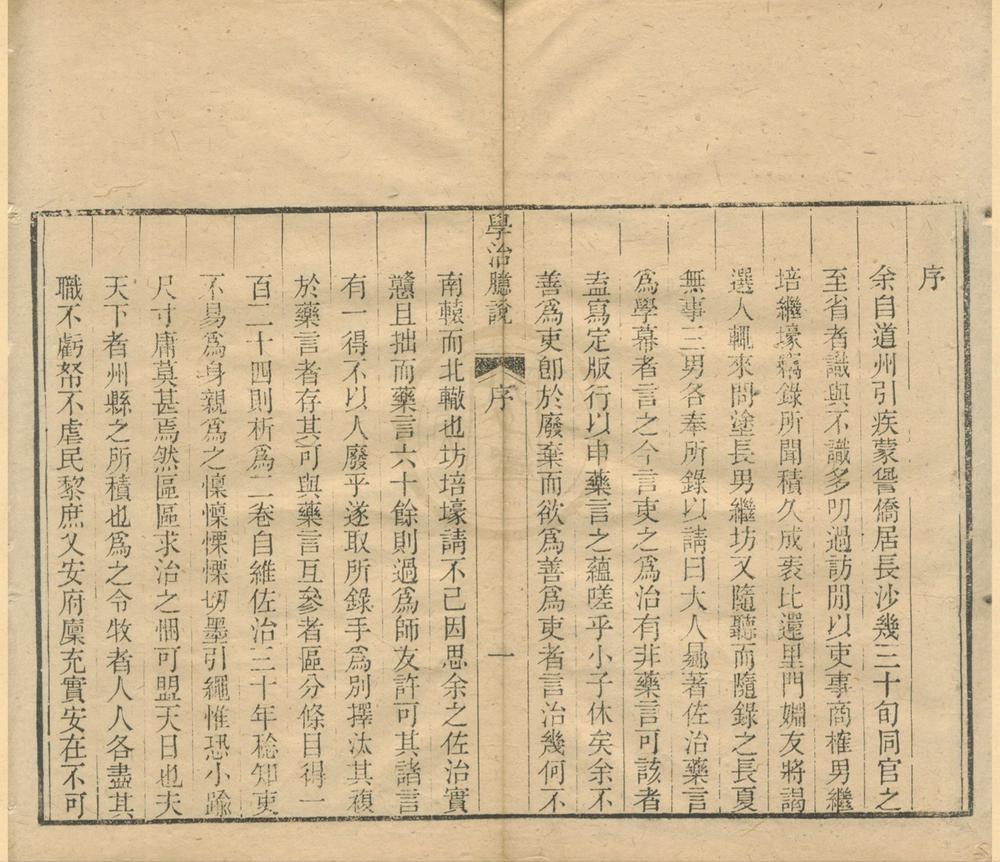 序
余自道州引疾蒙譽僑居長沙幾三十旬同官之
至省者識與不識多叨過訪閒以吏事商榷男繼
培繼壕竊錄所聞積久成袠比還里門婣友將謁
選人輒來問塗長男繼坊又隨聽而隨錄之長夏
無事三男各奉所錄以請曰大人曏著佐治藥言
爲學幕者言之今言吏之爲治有非藥言可該者
盍寫定版行以申藥言之蘊嗟乎小子休矣余不
善爲吏卽於廢棄而欲爲善爲吏者言治幾何不
學治臆說
序
一
南轅而北轍也坊培壕請不已因思余之佐治實
戇且拙而藥言六十餘則過爲師友許可其諸言
有一得不以人廢乎遂取所錄手爲別擇汰其複
於藥言者存其可與藥言互參者區分條目得一
百二十四則析爲二卷自維佐治三十年稔知吏
不易爲身親爲之懍懍慄慄切墨引繩惟恐小踰
尺寸庸莫甚焉然區區求治之悃可盟天日也夫
天下者州縣之所積也爲之令牧者人人各盡其
職不虧帑不虐民黎庶乂安府廩充實安在不可